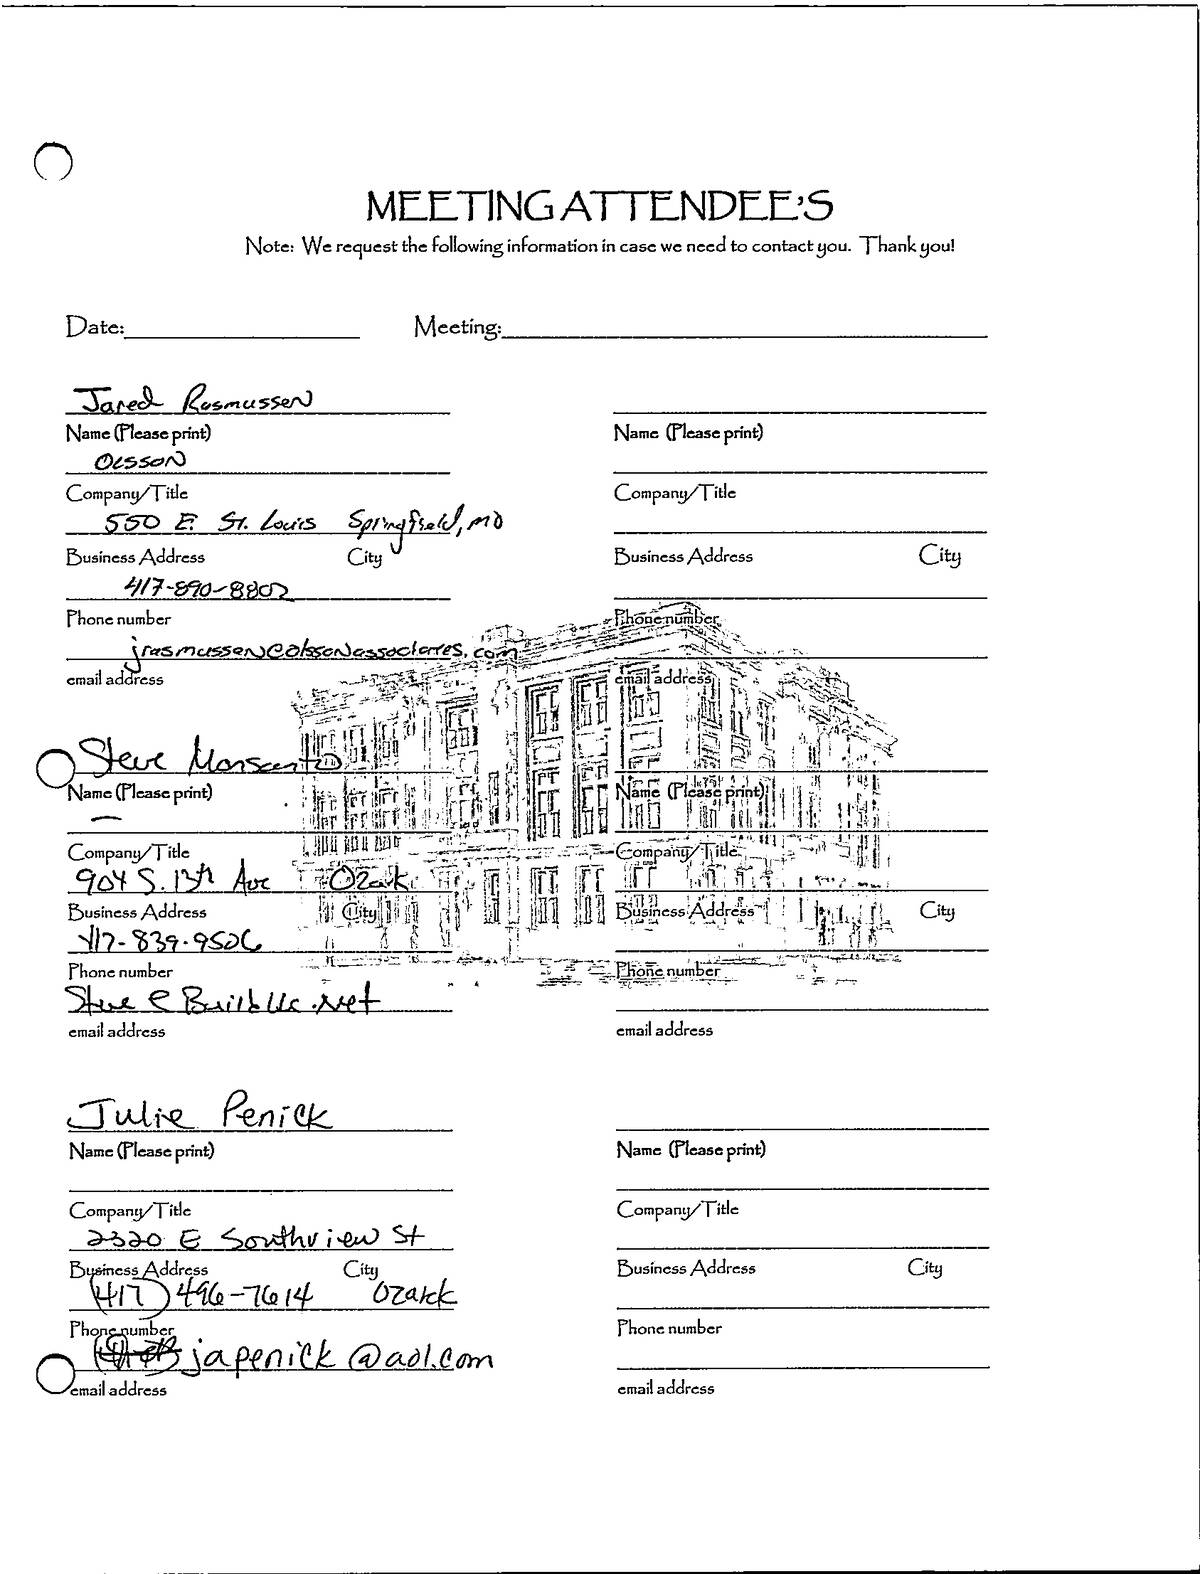 MEETING ATTENDEE'S
Note: We request the following information in case we need to contact you. Thank you!
Date: Meeting:
Jared Rasmussen
Name (Please print) Name (Please print)
Olsson
Company/Title Company/Title
550 E. St. Louis Springfield, MO
Business Address City Business Address City
417-890-8802
Phone number Phone number
jrasmussen@olssonassociates.com
email address email address
Steve Monsanto
Name (Please print) Name (Please print)
—
Company/Title Company/Title
904 S. 13th Ave Ozark
Business Address City Business Address City
417-839-9506
Phone number Phone number
Steve@Buildllc.net
email address email address
Julie Penick
Name (Please print) Name (Please print)
Company/Title Company/Title
2320 E Southview St
Business Address City Business Address City
(417) 496-7614 Ozark
Phone number Phone number
japenick@aol.com
email address email address